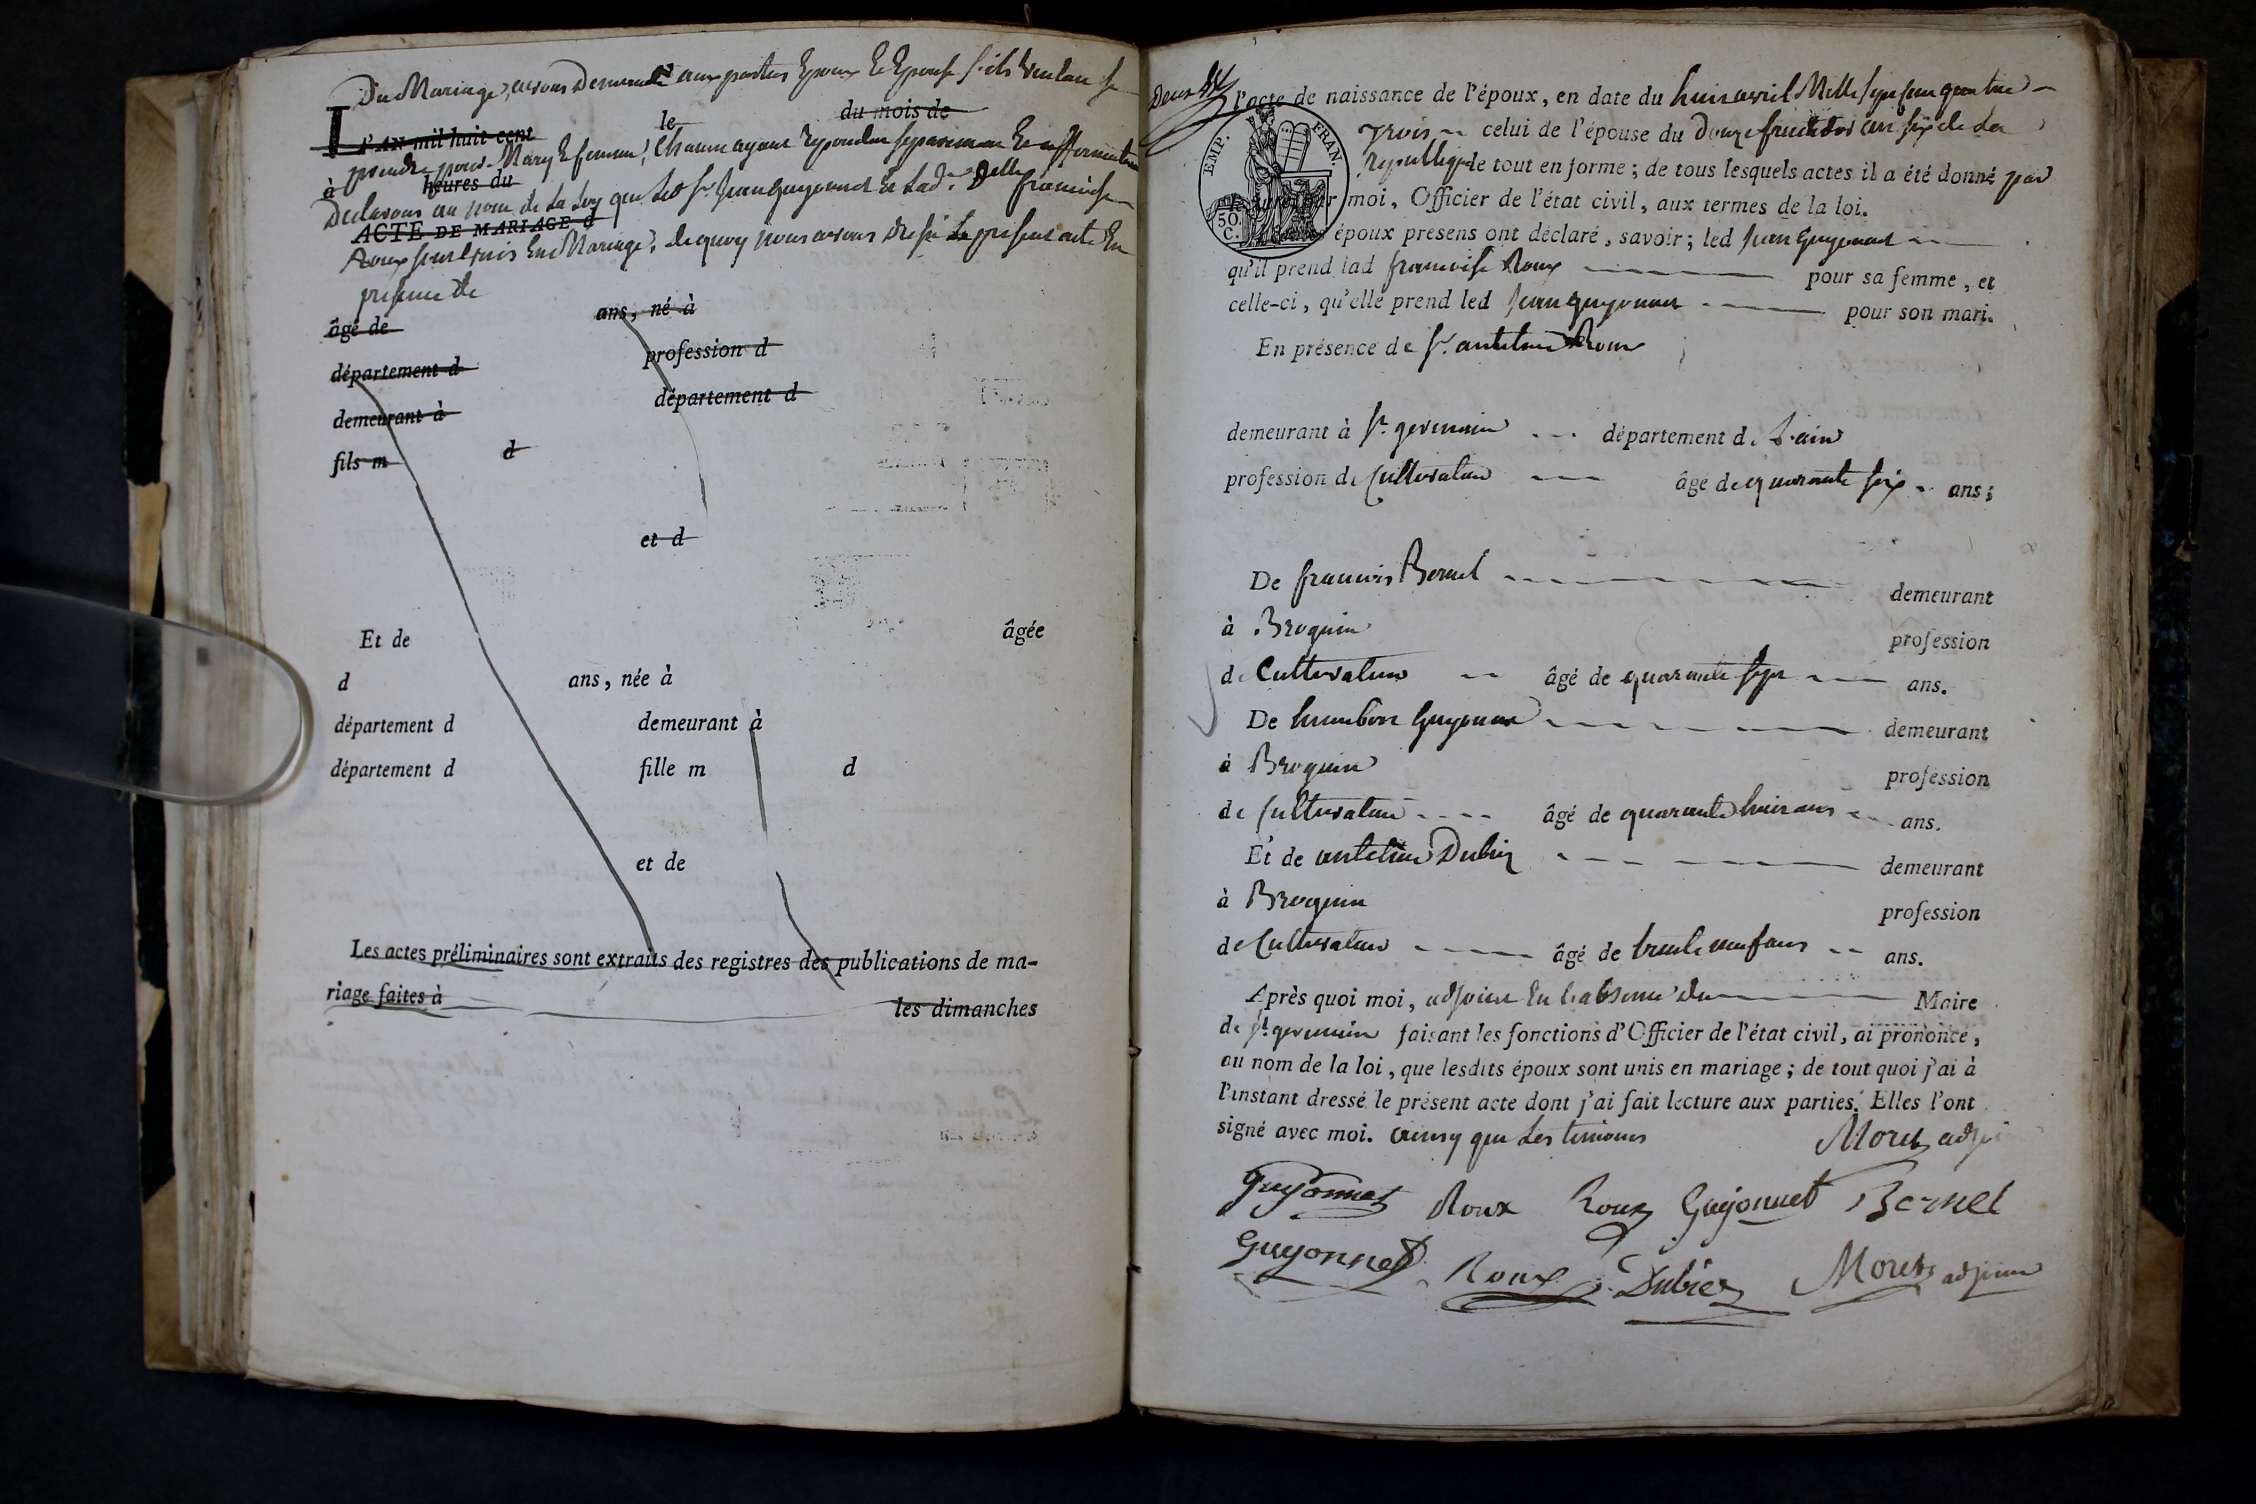 Du Mariage, avons Demandé aux parties Epoux Et Epouse s'ils veulent se
L'AN mil huit cent le du mois de
prendre pour Mary Et femme, Chacun ayant repondu separement Et affirmativement
à heures du
Declarons au nom de la Loy que Led Sr. Jean Guyonnet Et Lad. Delle francoise
ACTE DE MARIAGE d
Roux sont unis En Mariage, de quoy nous avons dressé Le present acte En
presence de
âgé de ans, né à
département d profession d
demeurant à département d
fils m d
et d
Et de âgée
d ans, née à
département d demeurant à
département d fille m d
et de
Les actes préliminaires sont extraits des registres des publications de ma-
riage faites à les dimanches
l'acte de naissance de l'époux, en date du huit avril Mille sept cent quatre
EMP. FRAN.
trois celui de l'épouse du Douze fructidor an six de La
Republique le tout en forme; de tous lesquels actes il a été donné par
moi, Officier de l'état civil, aux termes de la loi.
50. C.
époux presens ont déclaré, savoir; led Jean Guyonnet
qu'il prend lad francoise Roux pour sa femme, et
celle-ci, qu'elle prend led Jean guyonnet pour son mari.
En présence de Sr. antelme Roux
demeurant à St. germain département de L'ain
profession de Cultivateur âgé de quarante six ans;
De francois Bernel demeurant
à Brognin profession
de Cultivateur âgé de quarante sept ans.
De humbert Guyonnet demeurant
à Brognin profession
de Cultivateur âgé de quarante huit ans ans.
Et de antelme Dubiez demeurant
à Brognin profession
de Cultivateur âgé de trente neuf ans ans.
Après quoi moi, adjoint En L'absence du Maire
de St. germain faisant les fonctions d'Officier de l'état civil, ai prononcé,
au nom de la loi, que lesdits époux sont unis en mariage; de tout quoi j'ai à
l'instant dressé le présent acte dont j'ai fait lecture aux parties. Elles l'ont
signé avec moi. ainsy que Les temoins Moret adjoi
Guyonnet Roux Roux Guyonnet Bernel
Guyonnet Roux Dubiez Moret adjoint